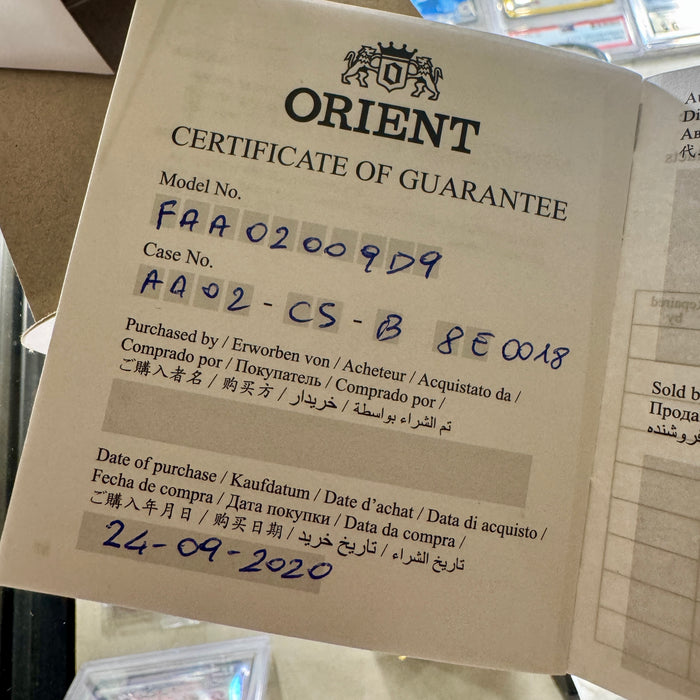 ORIENT
CERTIFICATE OF GUARANTEE
Model No.
FAA02009D9
Case No.
AA02-CS-B 8E0018
Purchased by / Erworben von / Acheteur / Acquistato da /
Comprado por / Покупатель / Comprado por /
ご購入者名 / 购买方 / خریدار / تم الشراء بواسطة
Date of purchase / Kaufdatum / Date d'achat / Data di acquisto /
Fecha de compra / Дата покупки / Data da compra /
ご購入年月日 / 购买日期 / تاریخ خرید / تاريخ الشراء
24-09-2020
Di
代
Sold b
Прода
فروشنده